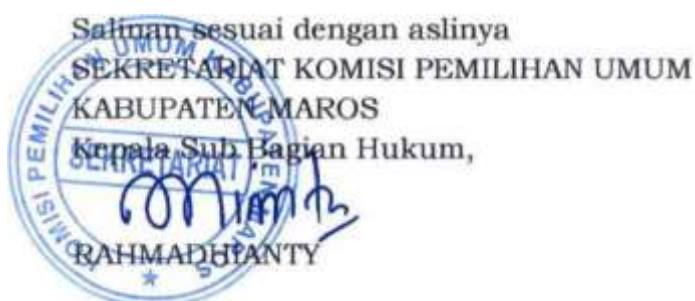 Salinan sesuai dengan aslinya
SEKRETARIAT KOMISI PEMILIHAN UMUM
KABUPATEN MAROS
Kepala Sub Bagian Hukum,
RAHMADHIANTY
KOMISI PEMILIHAN UMUM KABUPATEN MAROS
SEKRETARIAT